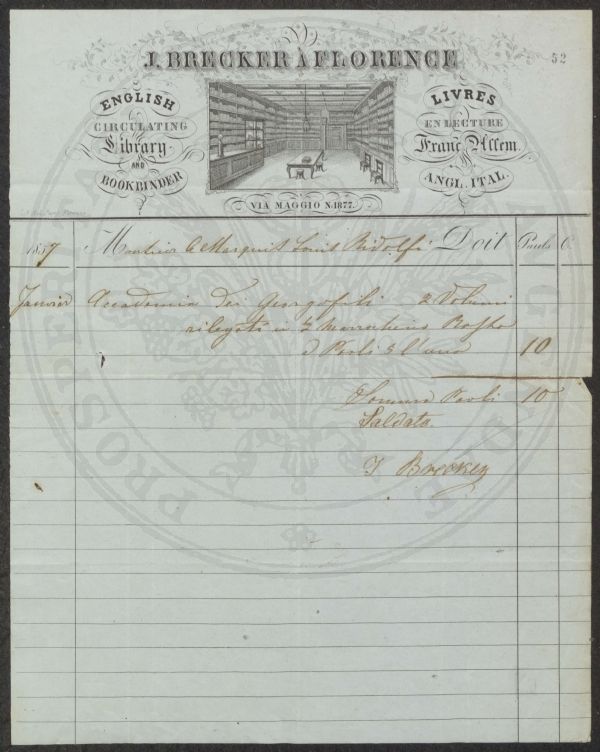 J. BRECKER À FLORENCE
52
ENGLISH
CIRCULATING
Library
AND
BOOKBINDER
LIVRES
EN LECTURE
Franc. Allem.
ANGL. ITAL.
VIA MAGGIO N. 1877.
1857 Monsieur le Marquis Louis Ridolfi Doit Pauls C.
Janvier Accademia dei Georgofili 2 Volumi
rilegati in ½ marrochino Rosso
a Paoli 5 l'uno 10
Somma Paoli 10
Saldato
J Brecker
PROSPERITATI